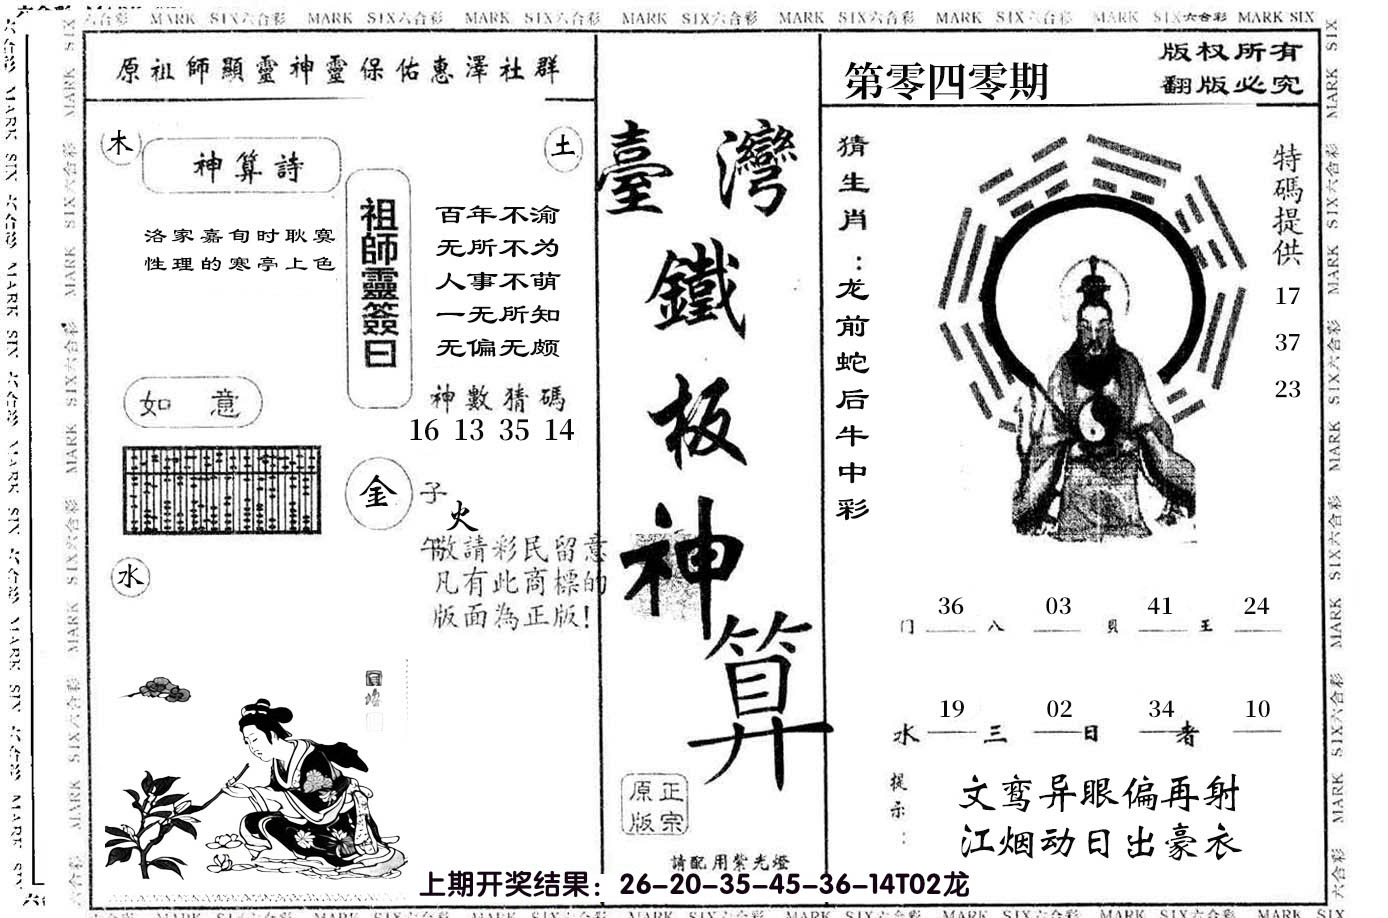 MARK SIX六合彩 MARK SIX六合彩 MARK SIX六合彩 MARK SIX六合彩 MARK SIX六合彩 MARK SIX六合彩 MARK SIX六合彩 MARK SIX
原祖師顯靈神靈保佑惠澤社群
木
土
神算詩
洛家嘉旬时耿寞
性理的寒亭上色
祖師靈簽曰
百年不渝
无所不为
人事不萌
一无所知
无偏无颇
神數猜碼
16 13 35 14
如 意
金
子
火
午
水
敬請彩民留意
凡有此商標的
版面為正版!
臺灣
鐵
板
神
算
原正
版宗
請配用紫光燈
第零四零期
版权所有
翻版必究
猜生肖:龙前蛇后牛中彩
特碼提供
17
37
23
门 36 八 03 貝 41 王 24
水 19 三 02 日 34 者 10
提示:
文鸾异眼偏再射
江烟动日出豪衣
上期开奖结果：26-20-35-45-36-14T02龙